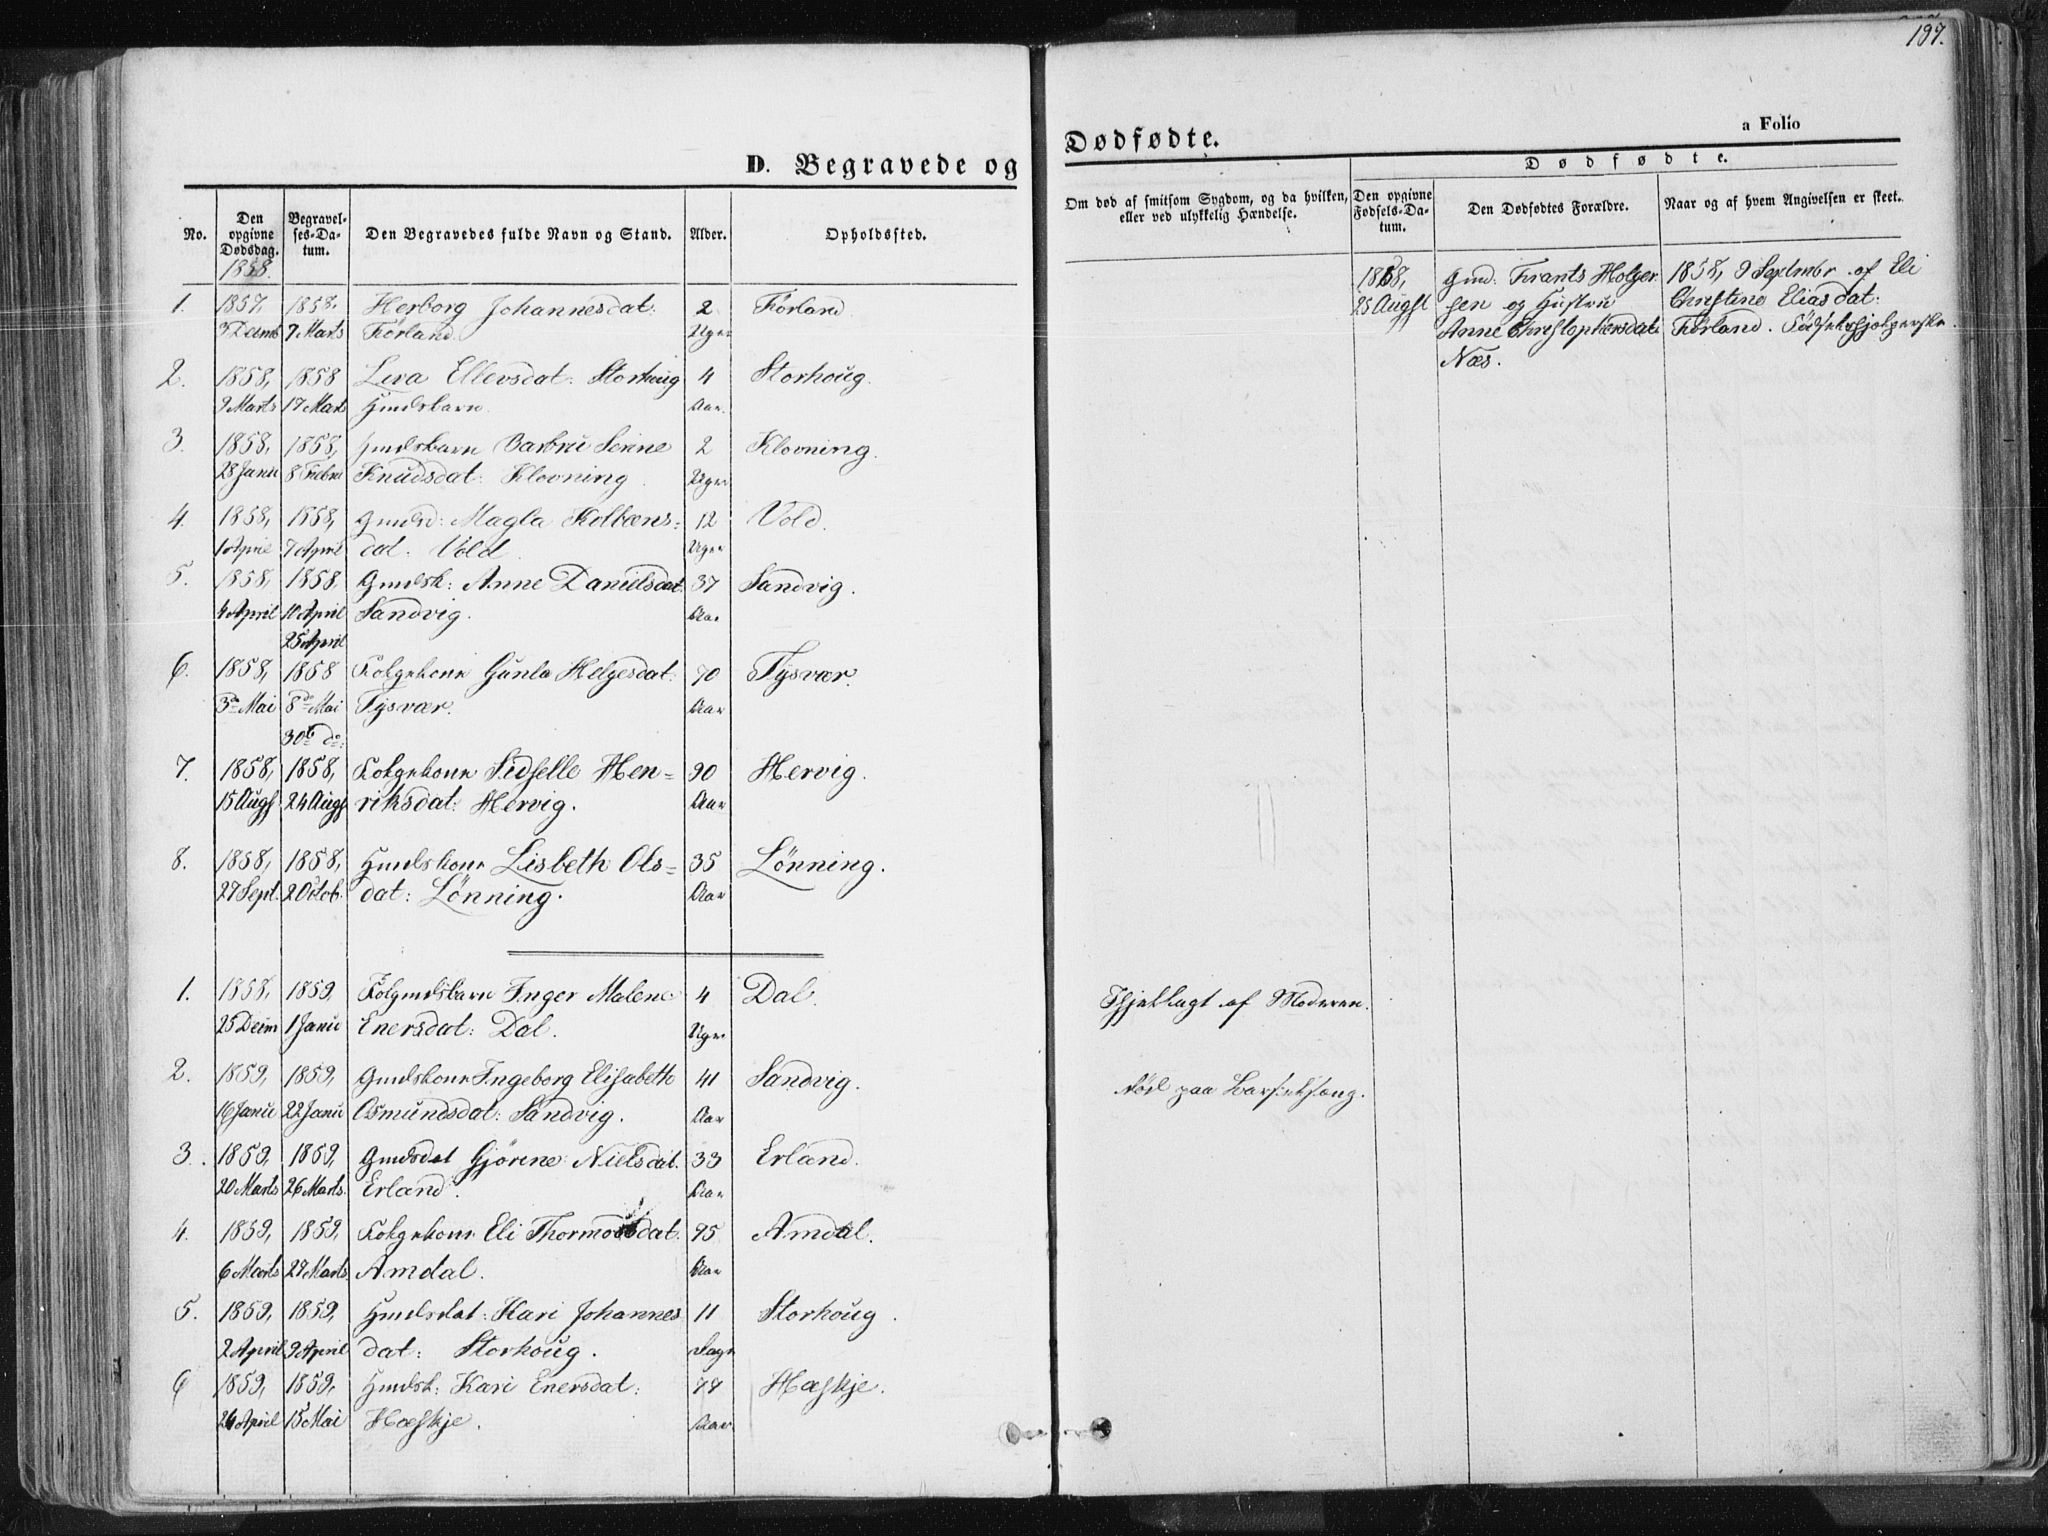 197.
a Folio
D. Begravede og
Dødfødte.
No.
Den opgivne Dødsdag.
Begravelses-Datum.
Den Begravedes fulde Navn og Stand.
Alder.
Opholdssted.
Om død af smitsom Sygdom, og da hvilken, eller ved ulykkelig Hændelse.
Dødfødte.
Den opgivne Fødsels-Datum.
Den Dødfødtes Forældre.
Naar og af hvem Angivelsen er skeet.
1858.
1. 1857, 1858. Herborg Johannesdat: 2 Førland.
3 Decmb 7 Marts Førland. Uger
2. 1858, 1858 Leva Ellevsdat: Storhoug 4 Storhoug.
9 Marts 17 Marts Hmdsbarn. Aar.
3. 1858, 1858, Hmdsbarn Barbru Serine 2 Klovning.
28 Janu 8 Febru Knudsdat: Klovning. Uger
4. 1858, 1858, Gmdsd: Magla Kolbens= 12 Vold.
1 April 7 April dat: Vold. Uger
5. 1858, 1858. Gmdsk: Anne Danielsdat 37 Sandvig.
4 April 10 April Sandvig. Aar
25 April
6. 1858, 1858 Folgekone Gunla Helgesdat: 70 Tysvær.
3de Mai 8de Mai Tysvær. Aar
30te do:
7. 1858, 1858, Folgekone Sidselle Hen= 90 Hervig.
15 Augs 24 Augs riksdat: Hervig. Aar
8. 1858, 1858, Hmdskone Lisbeth Ols= 35 Lønning.
27 Sept. 2 Octob. dat: Lønning. Aar
1. 1858, 1859, Inger Malene 4 Dal.
25 Decm 1 Janu Enersdat: Dal. Uger
2. 1859, 1859, Gmdskone Ingeborg Elisabeth 41 Sandvig.
16 Janu 22 Janu Osmundsdat: Sandvig. Aar
3. 1859, 1859, Gmdsdat Gjørine Nielsdat. 33 Erland.
20 Marts 26 Marts. Erland. Aar
4. 1859, 1859, Folgekone Eli Thormodsdat. 95 Amdal.
6 Marts 27 Marts. Amdal. Aar
5. 1859, 1859, Hmdsdat: Kari Johannes 11 Storhoug.
2 April 9 April dat: Storhoug. Dage
6 1859, 1859, Hmdsk: Kari Enersdat: 77 Hæskje.
26 April 15 Mai Hæskje. Aar
1858, Gmd: Frants Holger 1858, 9 Septmbr af Eli
25 Augst sen og Hustru Christine Eliasdat:
Anne Christophersdat Førland.
Næs.
Ihjellagt af Moderen.
død paa Barselseng.